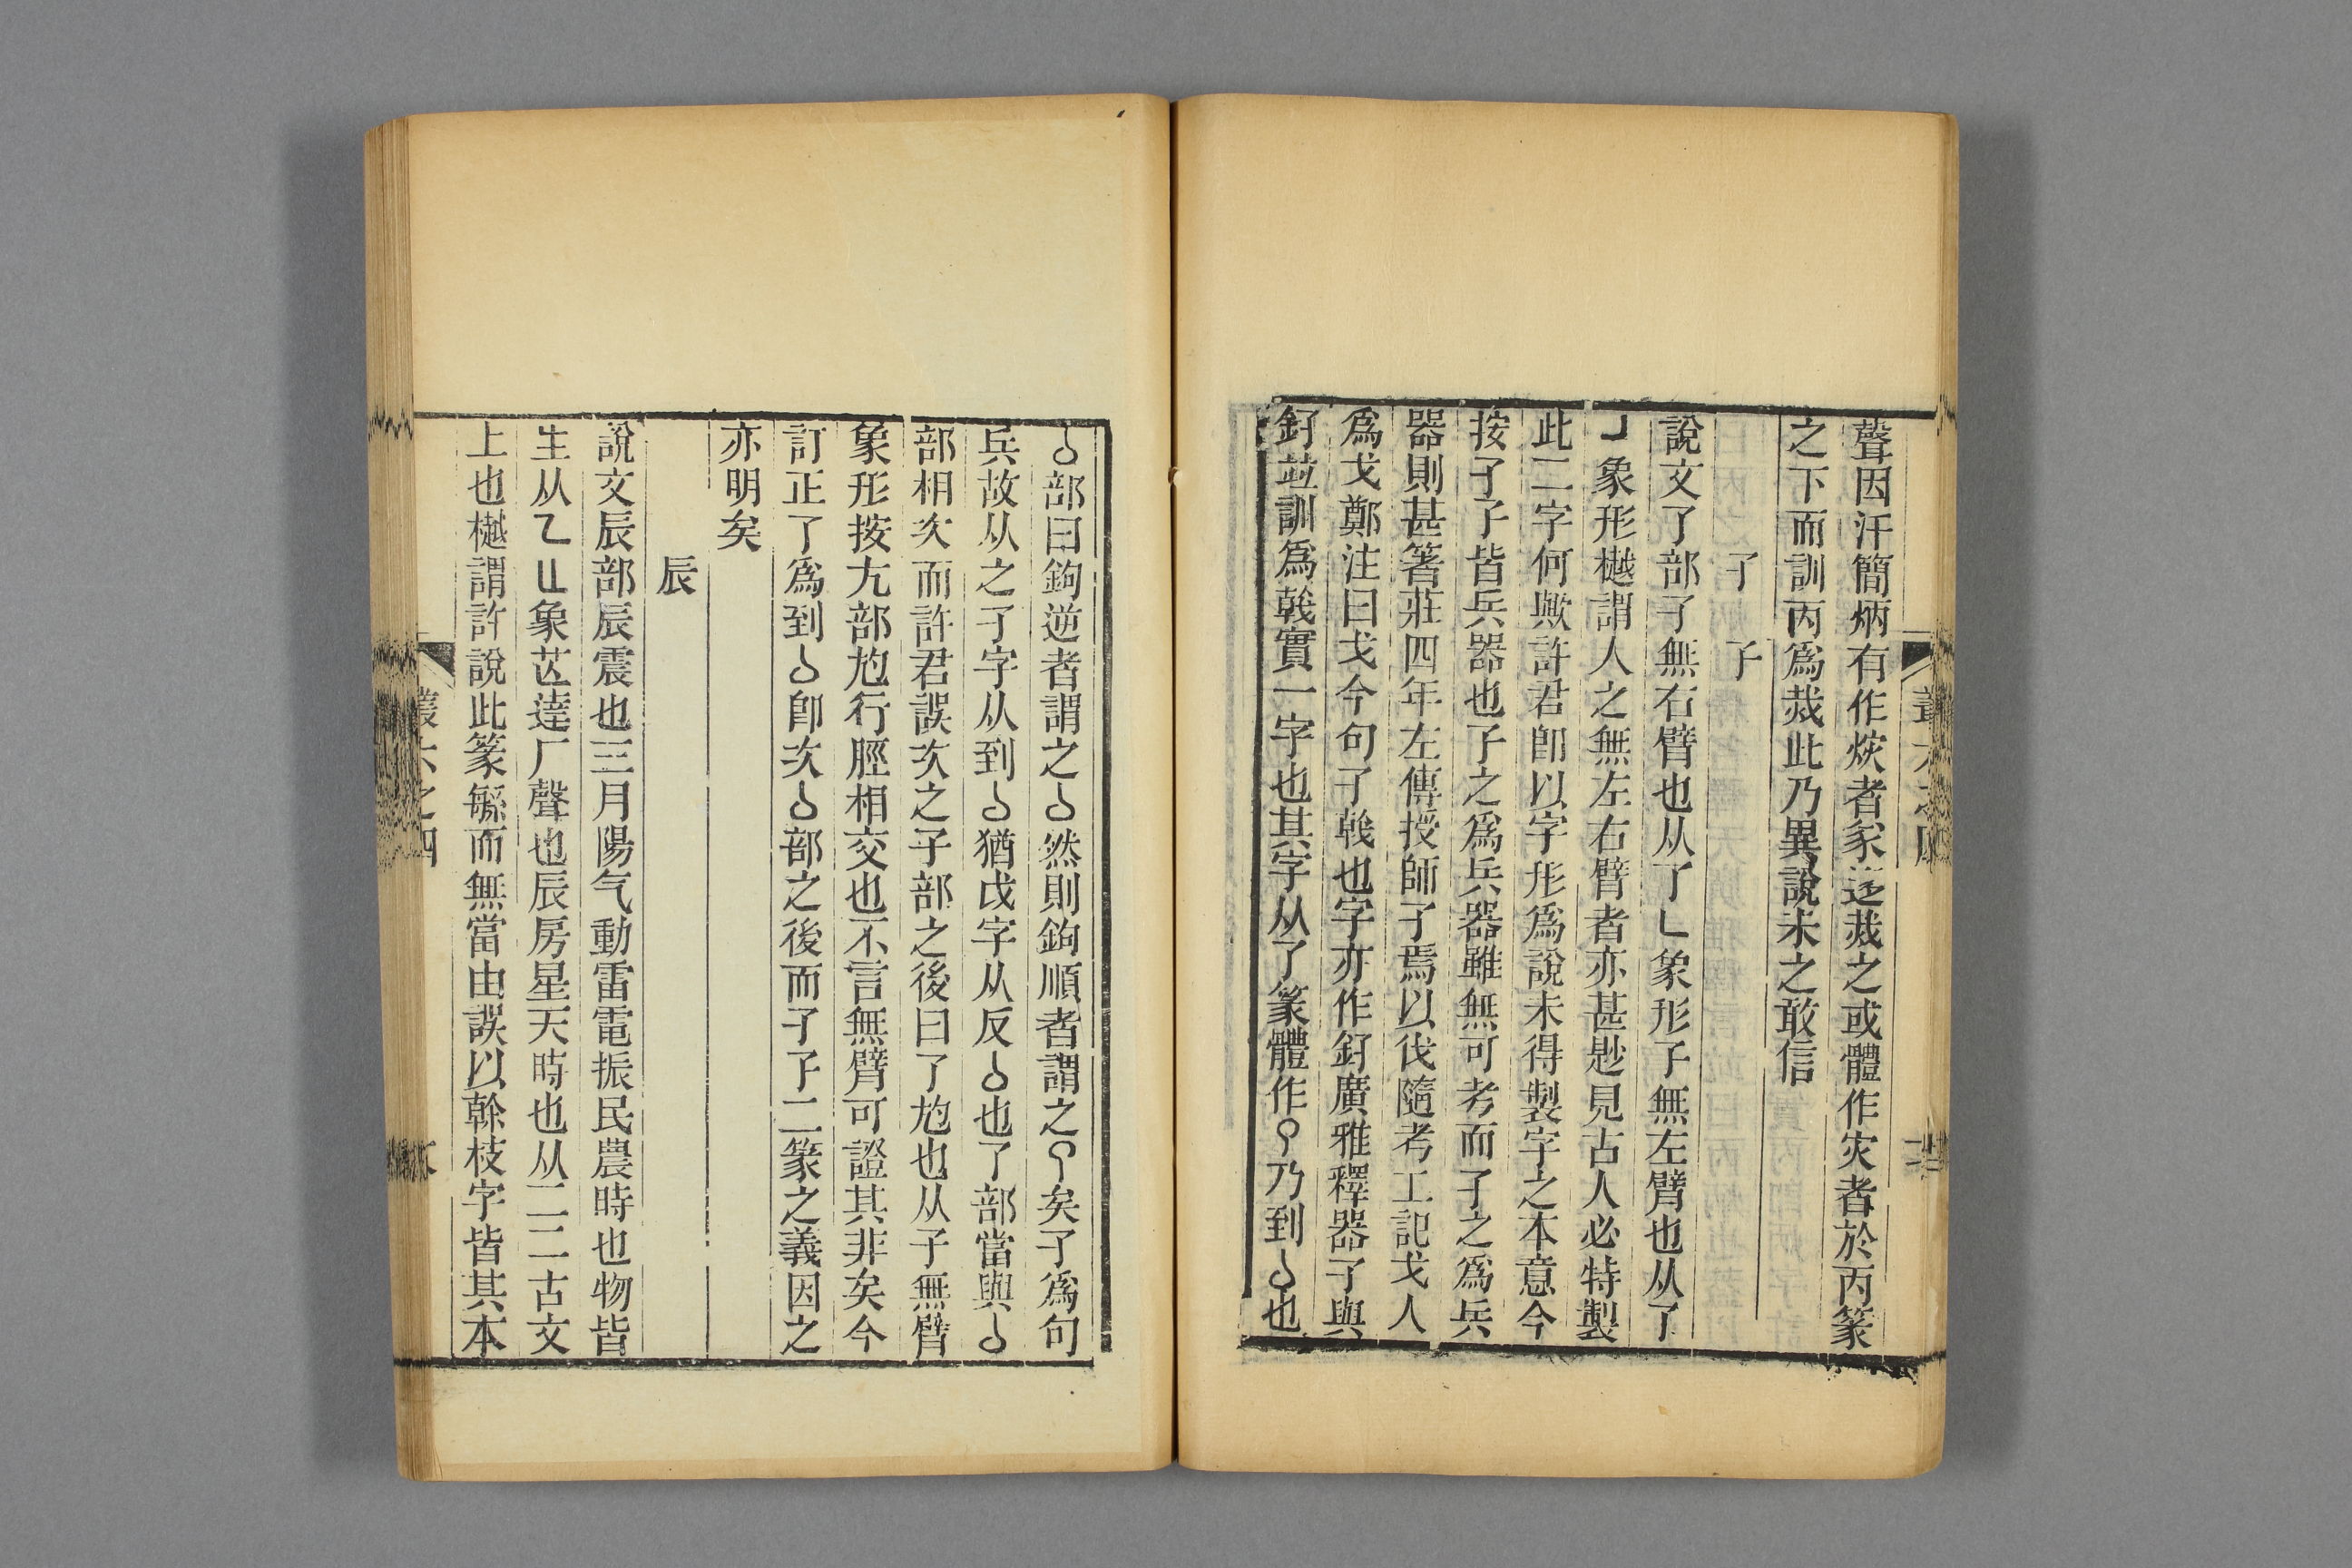 聲因汗簡炳有作烾者家迻烖之或體作灾者於丙篆
之下而訓丙爲烖此乃異說未之敢信
孑　孓
說文了部孑無右臂也从了乚象形孓無左臂也从了
亅象形樾謂人之無左右臂者亦甚尟見古人必特製
此二字何歟許君卽以字形爲說未得製字之本意今
按孑孓皆兵器也孓之爲兵器雖無可考而孑之爲兵
器則甚箸莊四年左傳授師孑焉以伐隨考工記戈人
爲戈鄭注曰戈今句孑戟也字亦作釨廣雅釋器孑與
釨竝訓爲戟實一字也其字从了篆體作乃到也
部曰鉤逆者謂之然則鉤順者謂之矣孑爲句
兵故从之孑字从到猶戉字从反也了部當與
部相次而許君誤次之子部之後曰了尥也从子無臂
象形按尢部尥行脛相交也不言無臂可證其非矣今
訂正了爲到卽次部之後而孑孓二篆之義因之
亦明矣
辰
說文辰部辰震也三月陽气動雷電振民農時也物皆
生从乙匕象芒達厂聲也辰房星天時也从二二古文
上也樾謂許說此篆緐而無當由誤以榦枝字皆其本
叢六之四